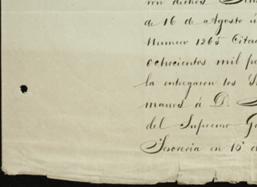 con dichos
de 16 de Agosto ú
Numero 1265 Citad
ochocientos mil p
la entregaron los S
manos á D.
del Supremo G
Tesoreria en 15 d